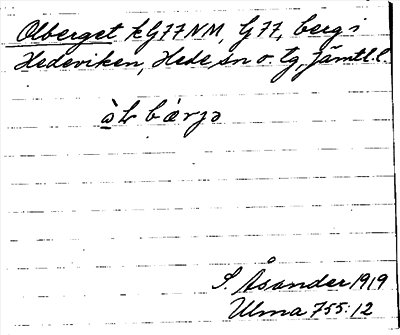 Olberget, kG77NM, G77, berg i
Hedeviken, Hede sn o. tg, Jämtl. l.
ò̱L bǽrjə
S. Åsander 1919
Ulma 755:12